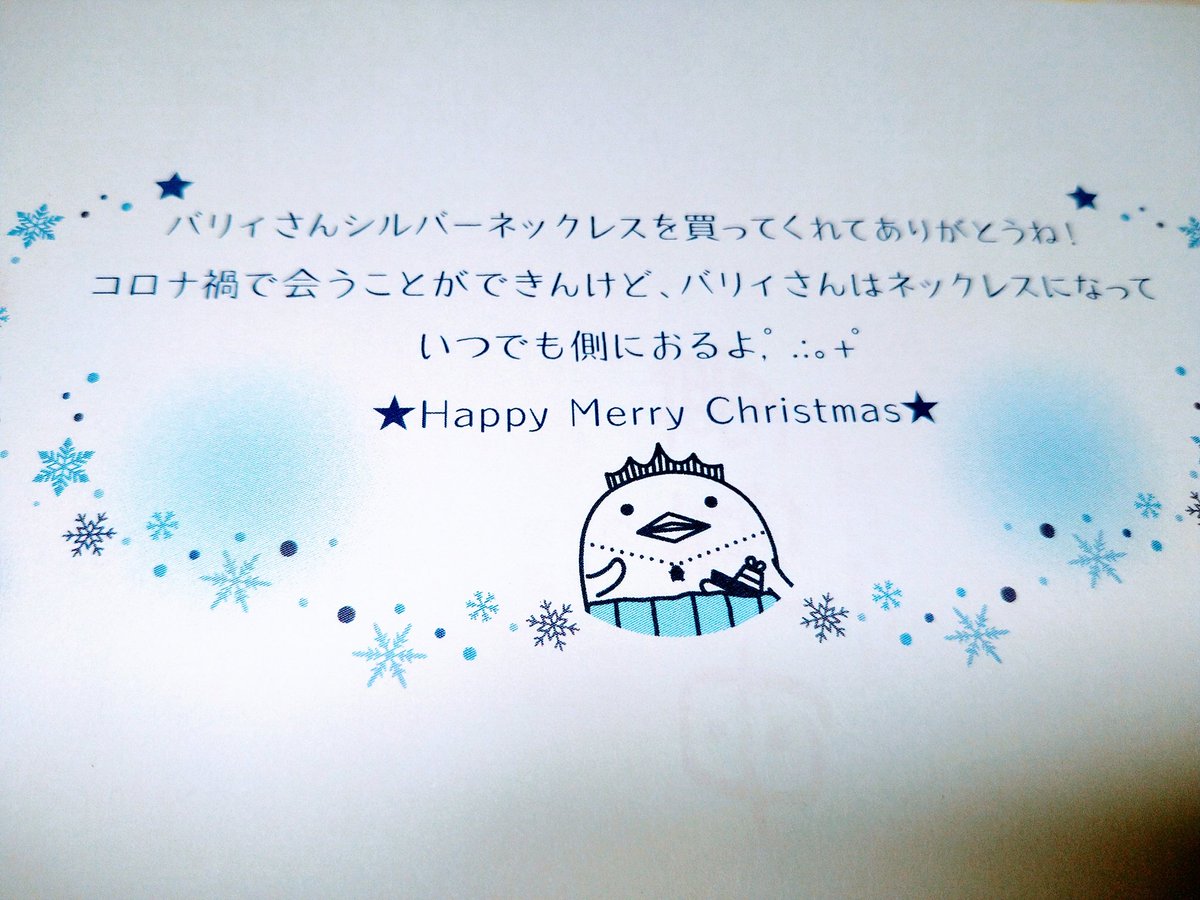 バリィさんシルバーネックレスを買ってくれてありがとうね!
コロナ禍で会うことができんけど、バリィさんはネックレスになって
いつでも側におるよ,゜.:。+゜
★Happy Merry Christmas★